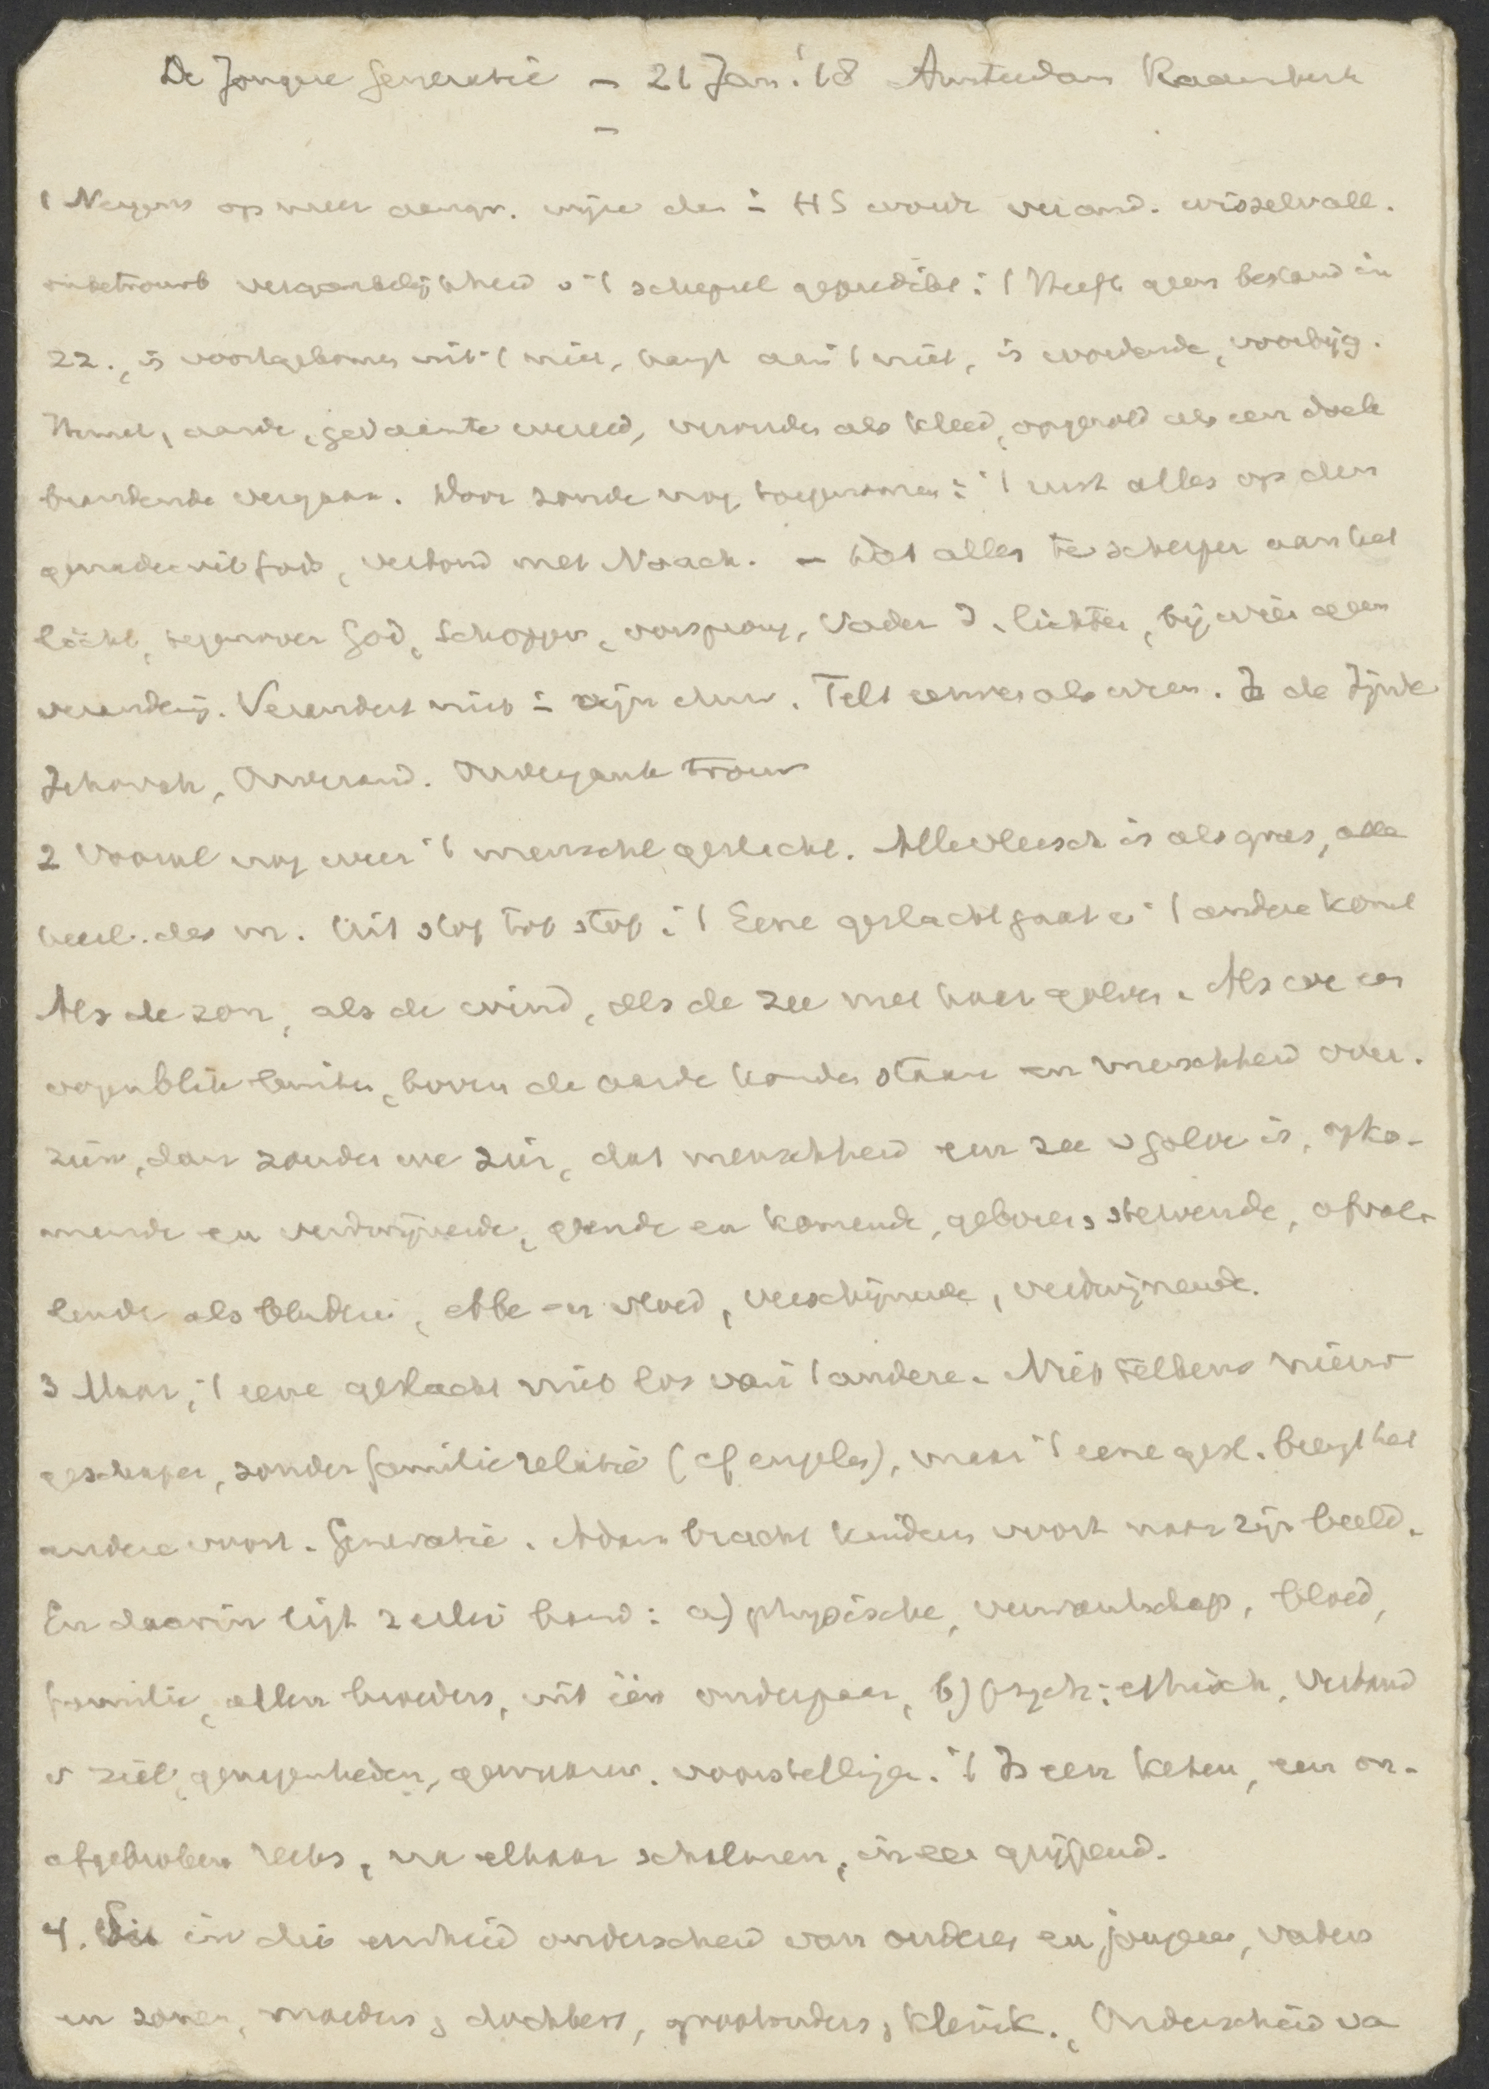 De Jongere Generatie – 21 Jan. '18 Amsterdam
–
1 Nergens op meer aangr. wijze dan i HS wordt verand. wisselvall.
onbetrouwb vergankelijkheid v 't schepsel gepredikt: 't Heeft geen bestand in
zz., is voortgekomen uit 't niet, hangt aan 't niet, is wordende, voorbijg.
Hemel, aarde, gedaante wereld, verouder als kleed, opgerold als een doek
brandende vergaan. Door zonde nog toegenomen: 't rust alles op den
genadewil Gods, verbond met Noach. – Dat alles te scherper aan het
licht, tegenover God, Schepper, oorsprong, Vader d. lichten, bij wien geen
verandering. Verandert niet i zijn duur. Telt eeuwen als uren. Is de Zijnde
Jehovah, Onverand. Onwegank trouw
2 Vooral nog weer 't menschel geslacht. Alle vleesch is als gras, alle
heerl. des m. Uit stof tot stof. 't Eene geslacht gaat e 't andere komt
Als de zon, als de wind, als de zee met haar golven. Als we een
oogenblik buiten, boven de aarde konden staan en menschheid over-
zien, dan zouden we zien, dat menschheid een zee v golven is, opko-
mende en verdwijnende, gaande en komende, geboren, stervende, afval-
lende als bladeren, ebbe en vloed, verschijnende, verdwijnende.
3 Maar, 't eene geslacht niet los van 't andere. Niet telkens nieuw
geschapen, zonder familie relatie (cf engelen), maar 't eene gesl. brengt het
andere voort. Generatie. Adam bracht kinders voort naar zijn beeld.
En daarin ligt 2 erlei band: a) physische, verwantschap, bloed,
familie, allen broeders, uit één ouderpaar, b) psych: ethisch, verband
v ziel, genegenheden, gewaarw. voorstellingen. 't Is een keten, een on-
afgebroken reeks, van elkaar schalmen, in een grijpend.
4. in die eenheid onderscheid van ouderen en jongeren, vaders
en zonen, moeders, dochters, grootouders, kleink. Onderscheid va